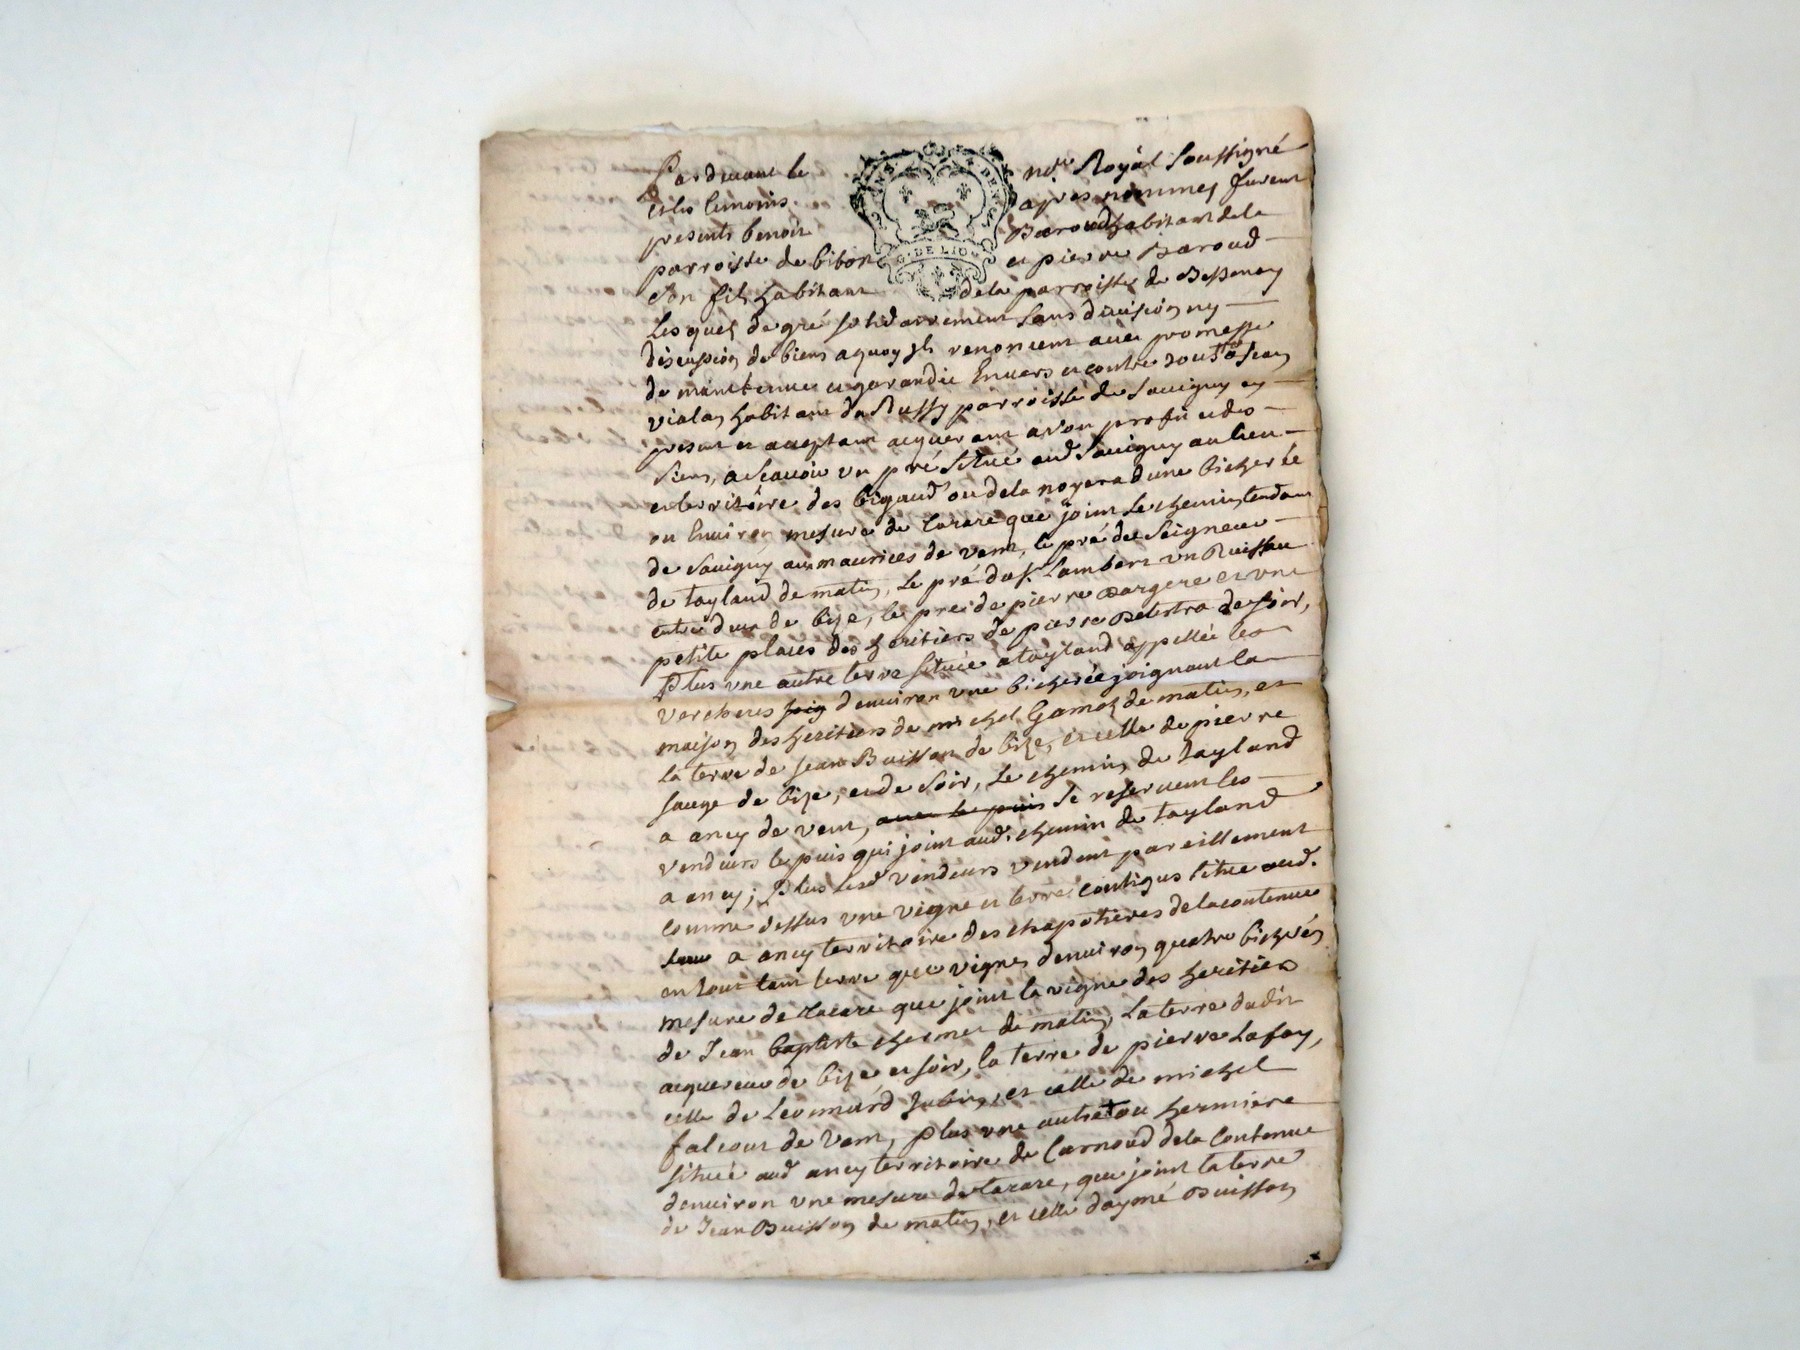 Pardevant le no.re Royal soussigné
et les temoins apres nommes furent
presents benoit Baroud habitant de la
parroisse de bibor et pierre Baroud
son fils habitant de la parroisse de Bessenay
G. DE LION
Lesquels de gré solidairement sans division ny
discusion de biens a quoy ils renoncent avec promesse
de maintenue et garandie Envers et contre tous a Jean
vialay habitant du Russy parroisse de Savigny cy
present et acceptant acquerant a son profit et des
siens, a scavoir un pré situé aud Savigny au lieu
et territoire des bigaud ou de la noyera d'une bicherée
ou Environ mesure de tarare que joint le chemin tendant
de Savigny aux maurices de vent, le pré du Seigneur
de tayland de matin, Le pré du s.r Lambert un Ruisseau
entre deux de bize, le prez de pierre Bargere et une
petite places des heritiers de pierre Delestra de soir,
Plus une autre terre située a tayland appellée les
vercheres joig d'environ une bicherée joignant la
maison des heritiers de michel Gamet de matin, et
la terre de jean Buisson de bize, et celle de pierre
sauge de bize, et de soir, Le chemin de Tayland
a ancy de vent, avec le puis se reservent les
vendeurs le puis qui joint aud. chemin de tayland
a ancy; Plus lesd vendeurs vendent pareillement
comme dessus une vigne et terre contigus situe aud.
a ancy territoire des chapotieres de la contenue
en tout tant terre que vignes d'environ quatre bicherés
mesure de tarare que joint la vigne des heritiers
de Jean baptiste chermet de matin, la terre dudit
acquereur de bize et soir, la terre de pierre Lafay,
celle de Leonnard Jubin, et celle de michel
falcout de vent, plus une autre + ou hermiere
située aud ancy territoire de Carnoud de la Contenue
d'environ une mesure de tarare, que joint la terre
de Jean Buisson de matin, et celle d'aymé Buisson